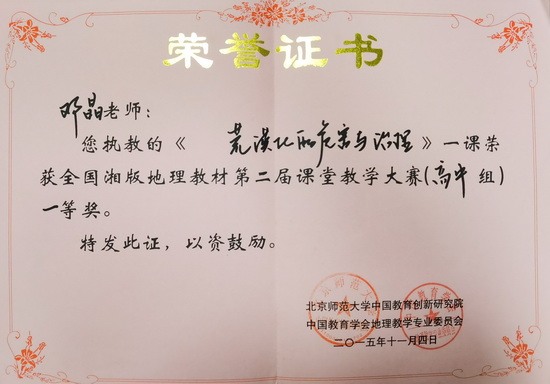 荣誉证书
邓晶老师：
您执教的《荒漠化的危害与治理》一课荣
获全国湘版地理教材第二届课堂教学大赛(高中组)
一等奖。
特发此证，以资鼓励。
北京师范大学中国教育创新研究院
中国教育学会地理教学专业委员会
二〇一五年十一月四日